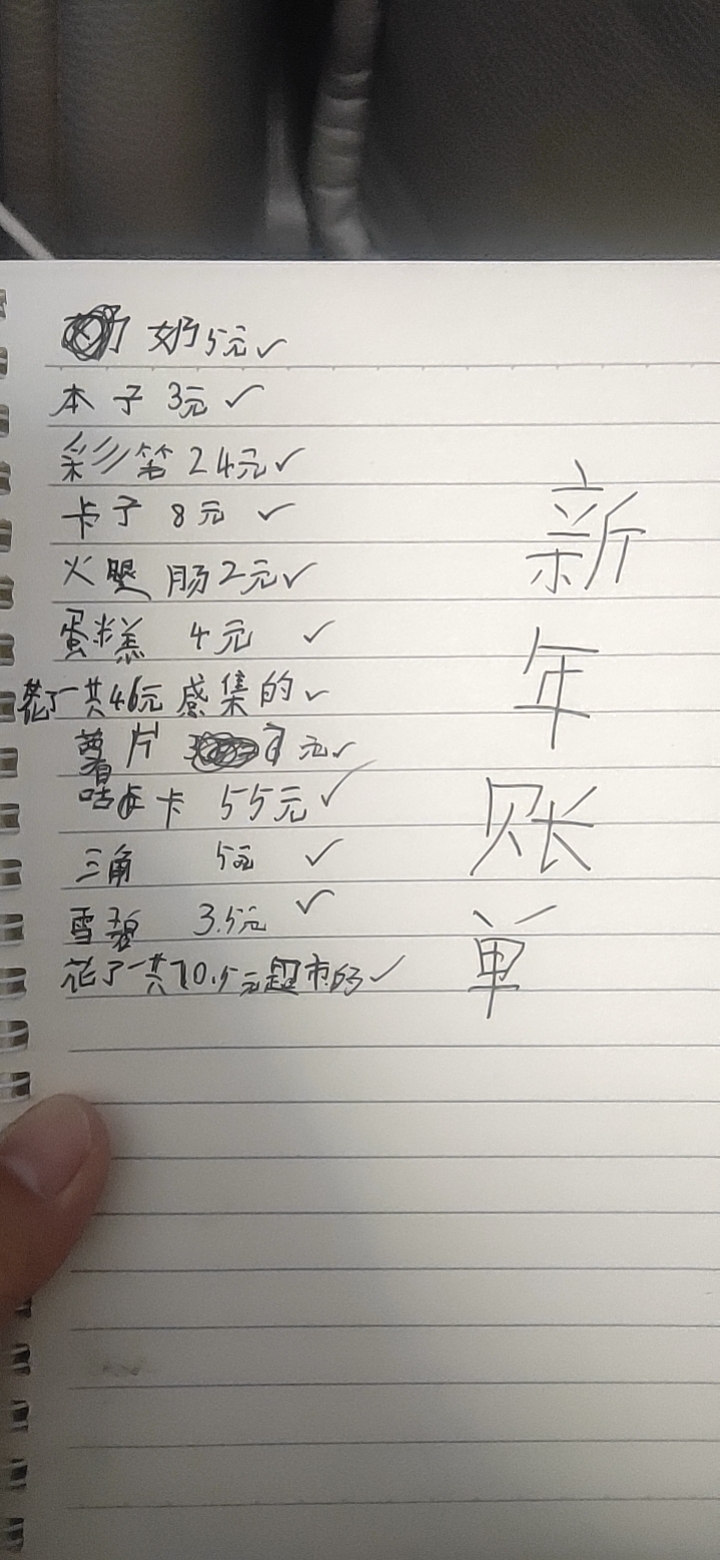 奶5元✓
本子 3元✓
彩笔 24元✓
卡子 8元 ✓
火腿肠2元✓
蛋糕 4元 ✓
花了一共46元感集的✓
薯片 元✓
咕卡卡 55元✓
三角 5元 ✓
雪碧 3.5元 ✓
花了一共70.5元超市的✓
新
年
账
单